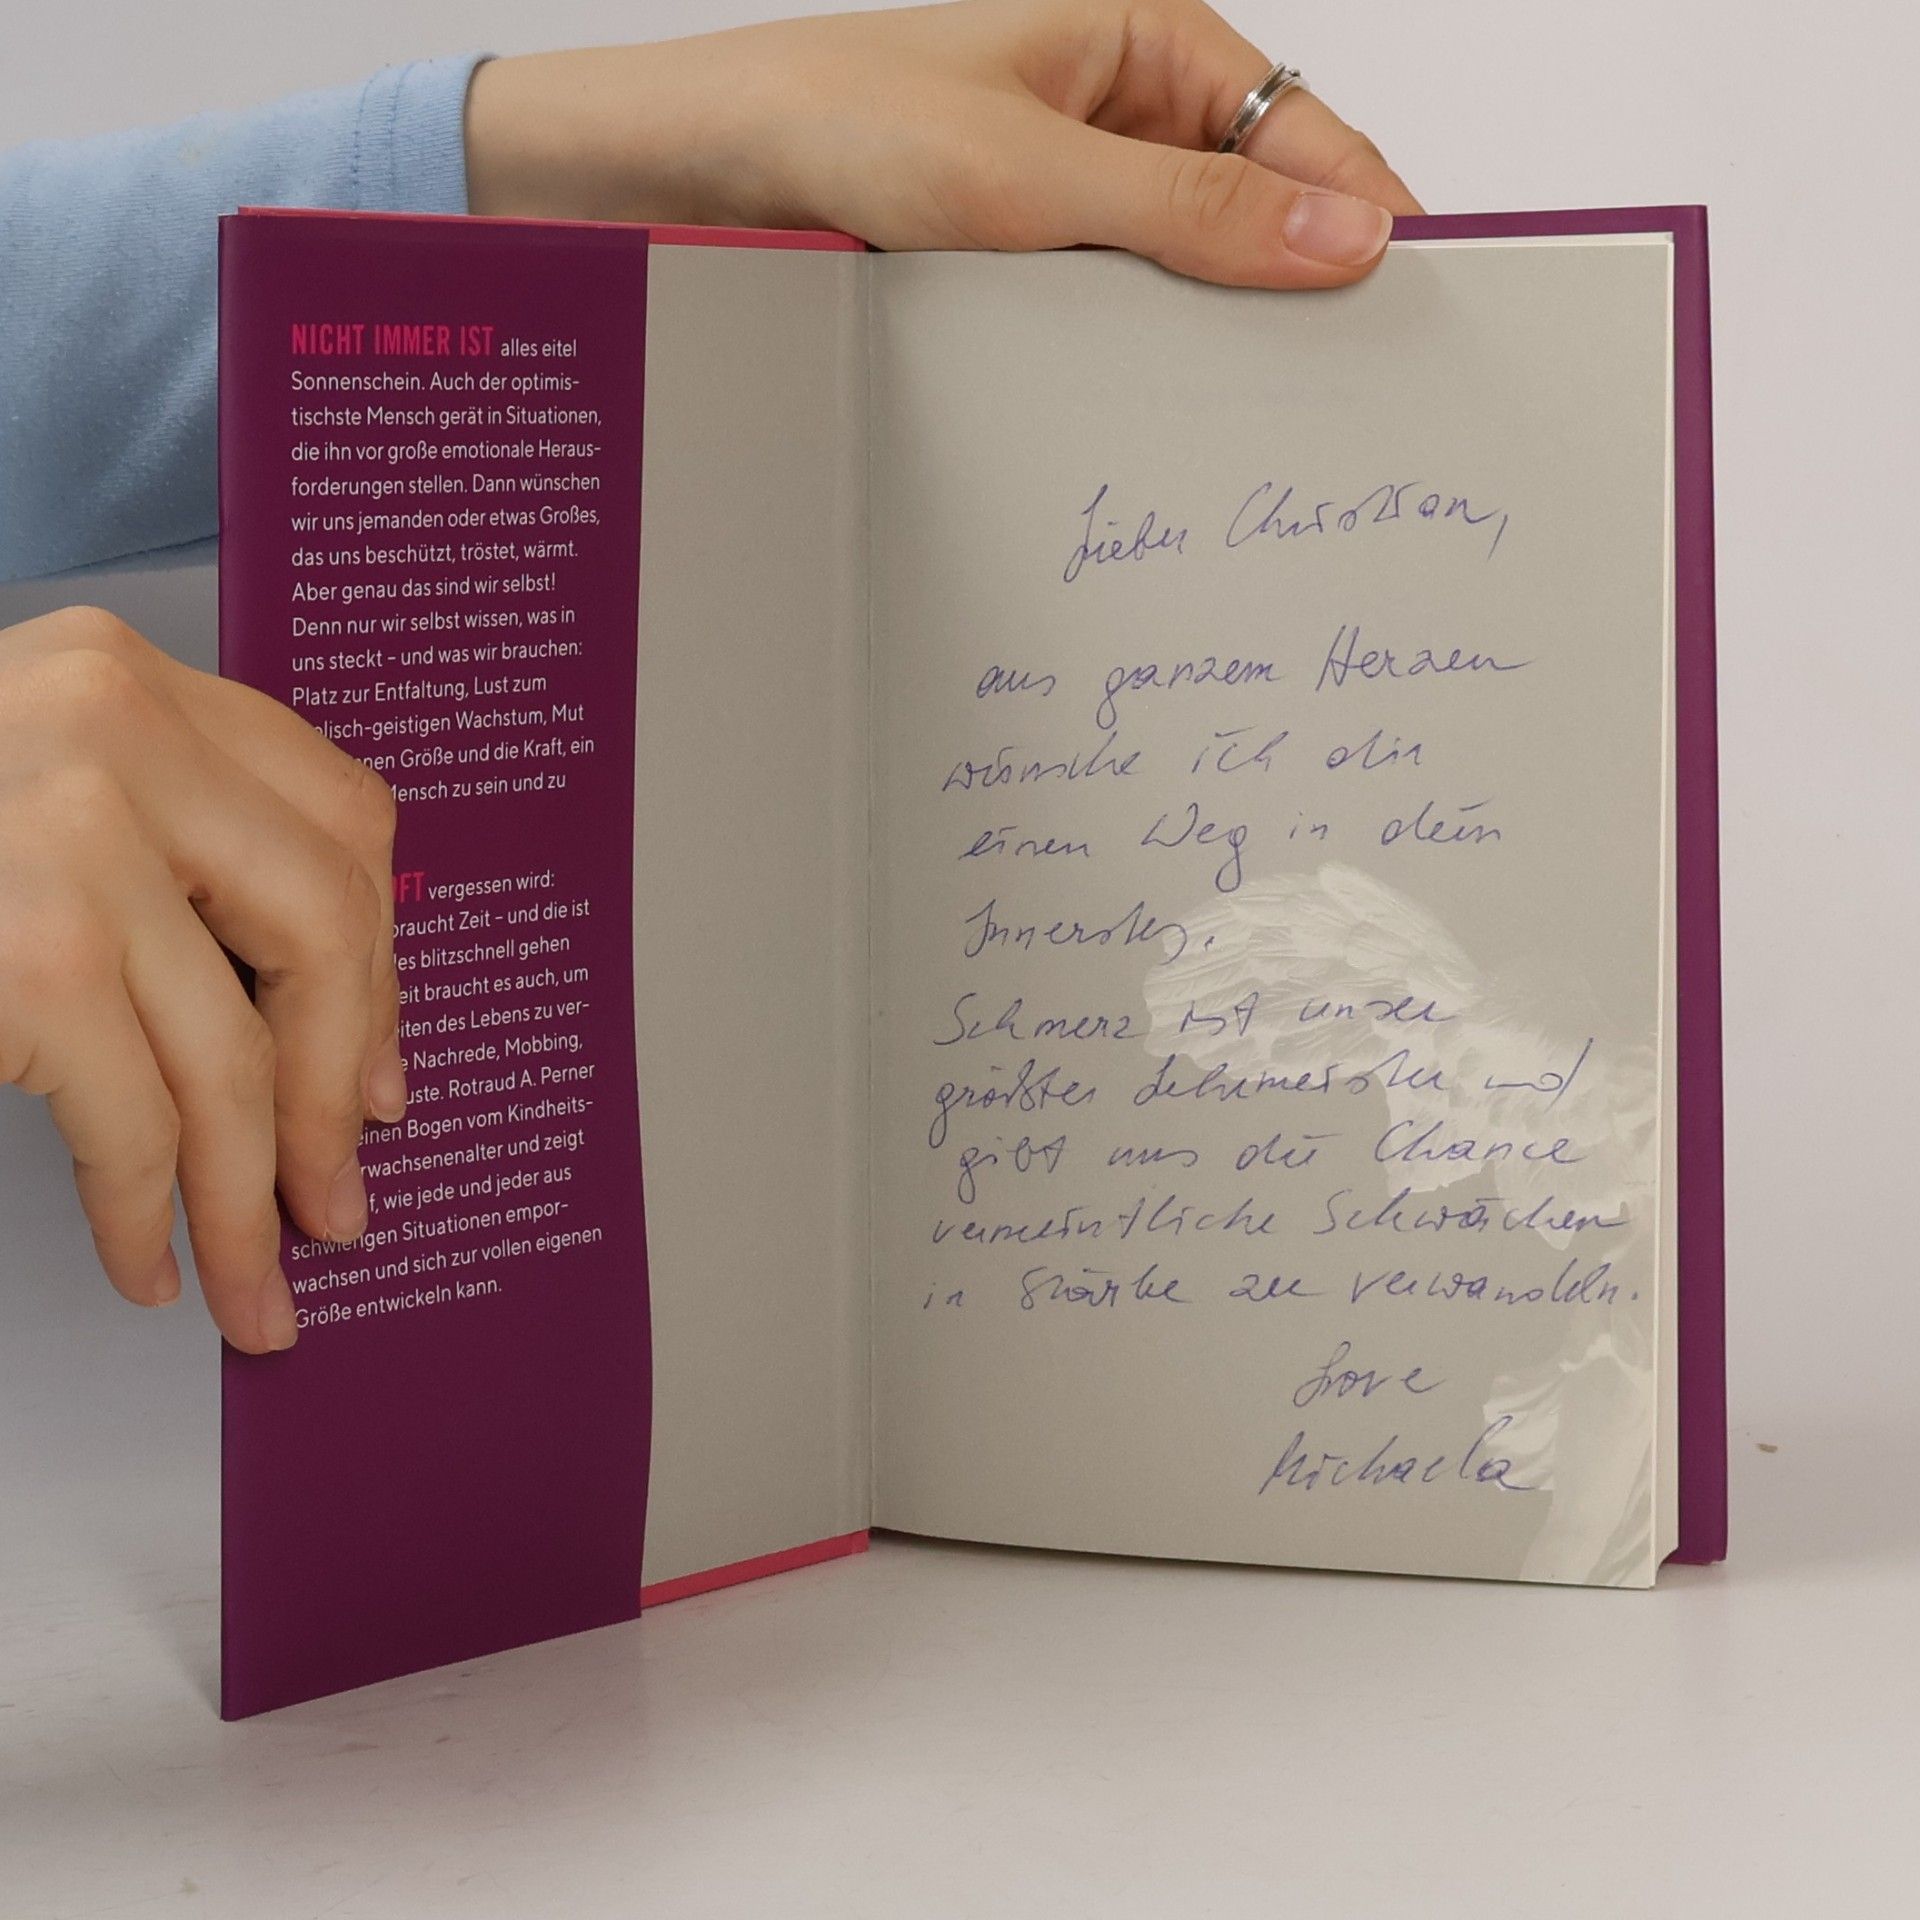 NICHT IMMER IST alles eitel
Sonnenschein. Auch der optimis-
tischste Mensch gerät in Situationen,
die ihn vor große emotionale Heraus-
forderungen stellen. Dann wünschen
wir uns jemanden oder etwas Großes,
das uns beschützt, tröstet, wärmt.
Aber genau das sind wir selbst!
Denn nur wir selbst wissen, was in
uns steckt – und was wir brauchen:
Platz zur Entfaltung, Lust zum
lisch-geistigen Wachstum, Mut
nen Größe und die Kraft, ein
Mensch zu sein und zu
OFT vergessen wird:
braucht Zeit – und die ist
les blitzschnell gehen
eit braucht es auch, um
iten des Lebens zu ver-
e Nachrede, Mobbing,
uste. Rotraud A. Perner
einen Bogen vom Kindheits-
rwachsenenalter und zeigt
f, wie jede und jeder aus
schwierigen Situationen empor-
wachsen und sich zur vollen eigenen
Größe entwickeln kann.
Lieber Christian,
aus ganzem Herzen
wünsche ich dir
einen Weg in dein
Innerstes.
Schmerz ist unser
größter Lehrmeister und
gibt uns die Chance
vermeintliche Schwächen
in Stärke zu verwandeln.
Love
Michaela